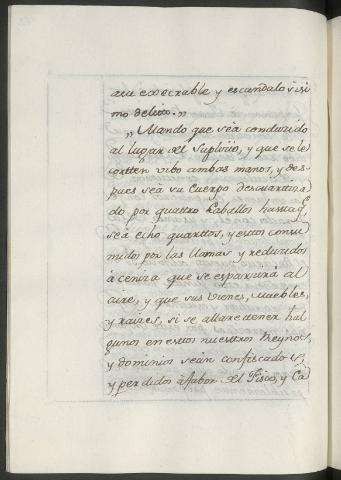 aun execrable y escandalosisi
mo delito.„
„Mando que sea conduzido
al lugar del Suplicio, y que se le
corten vibo ambas manos, y des-
pues sea su Cuerpo descuartiza
do por quattro Caballos hasta q̃
sea echo quarttos, y esttos consu
midos por las llamas y reduzidos
à ceniza que se esparsirà al
aire, y que sus vienes, muebles,
y raizes, si se allare tener hal
gunos en esttos nuesttros Reynos,
y dominios seàn confiscados,
y perdidos à fabor del Fisco, y Cà